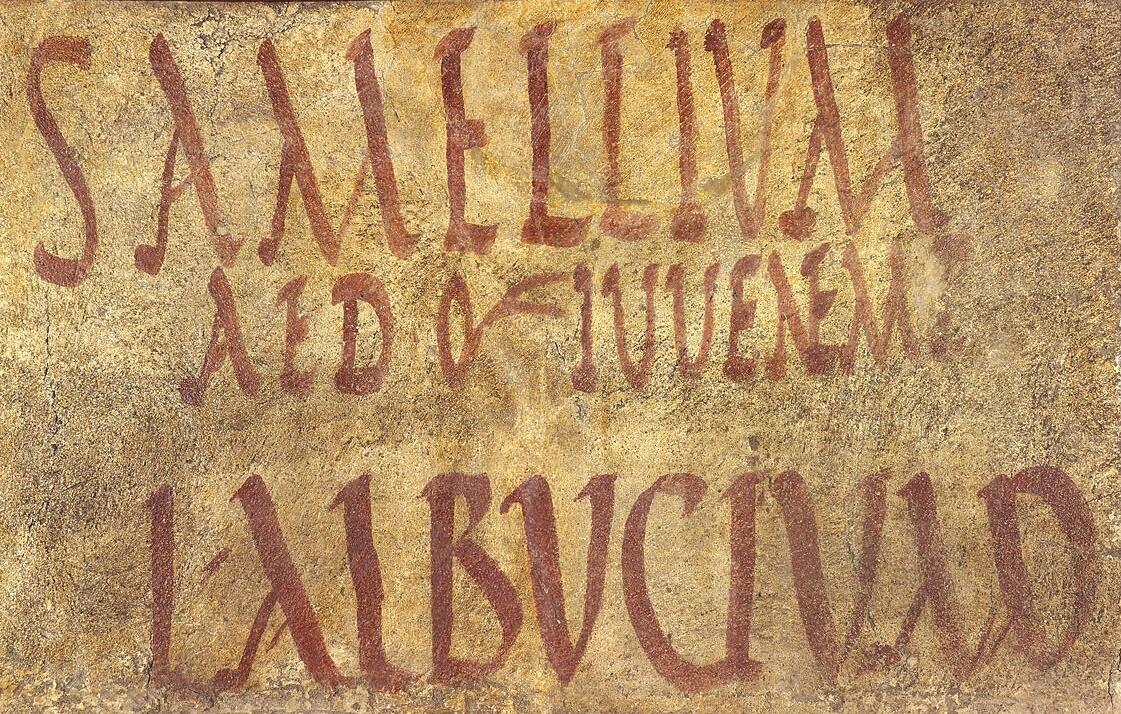 SAMELLIVM
AED OF IUVENEM
L ALBVCIVM